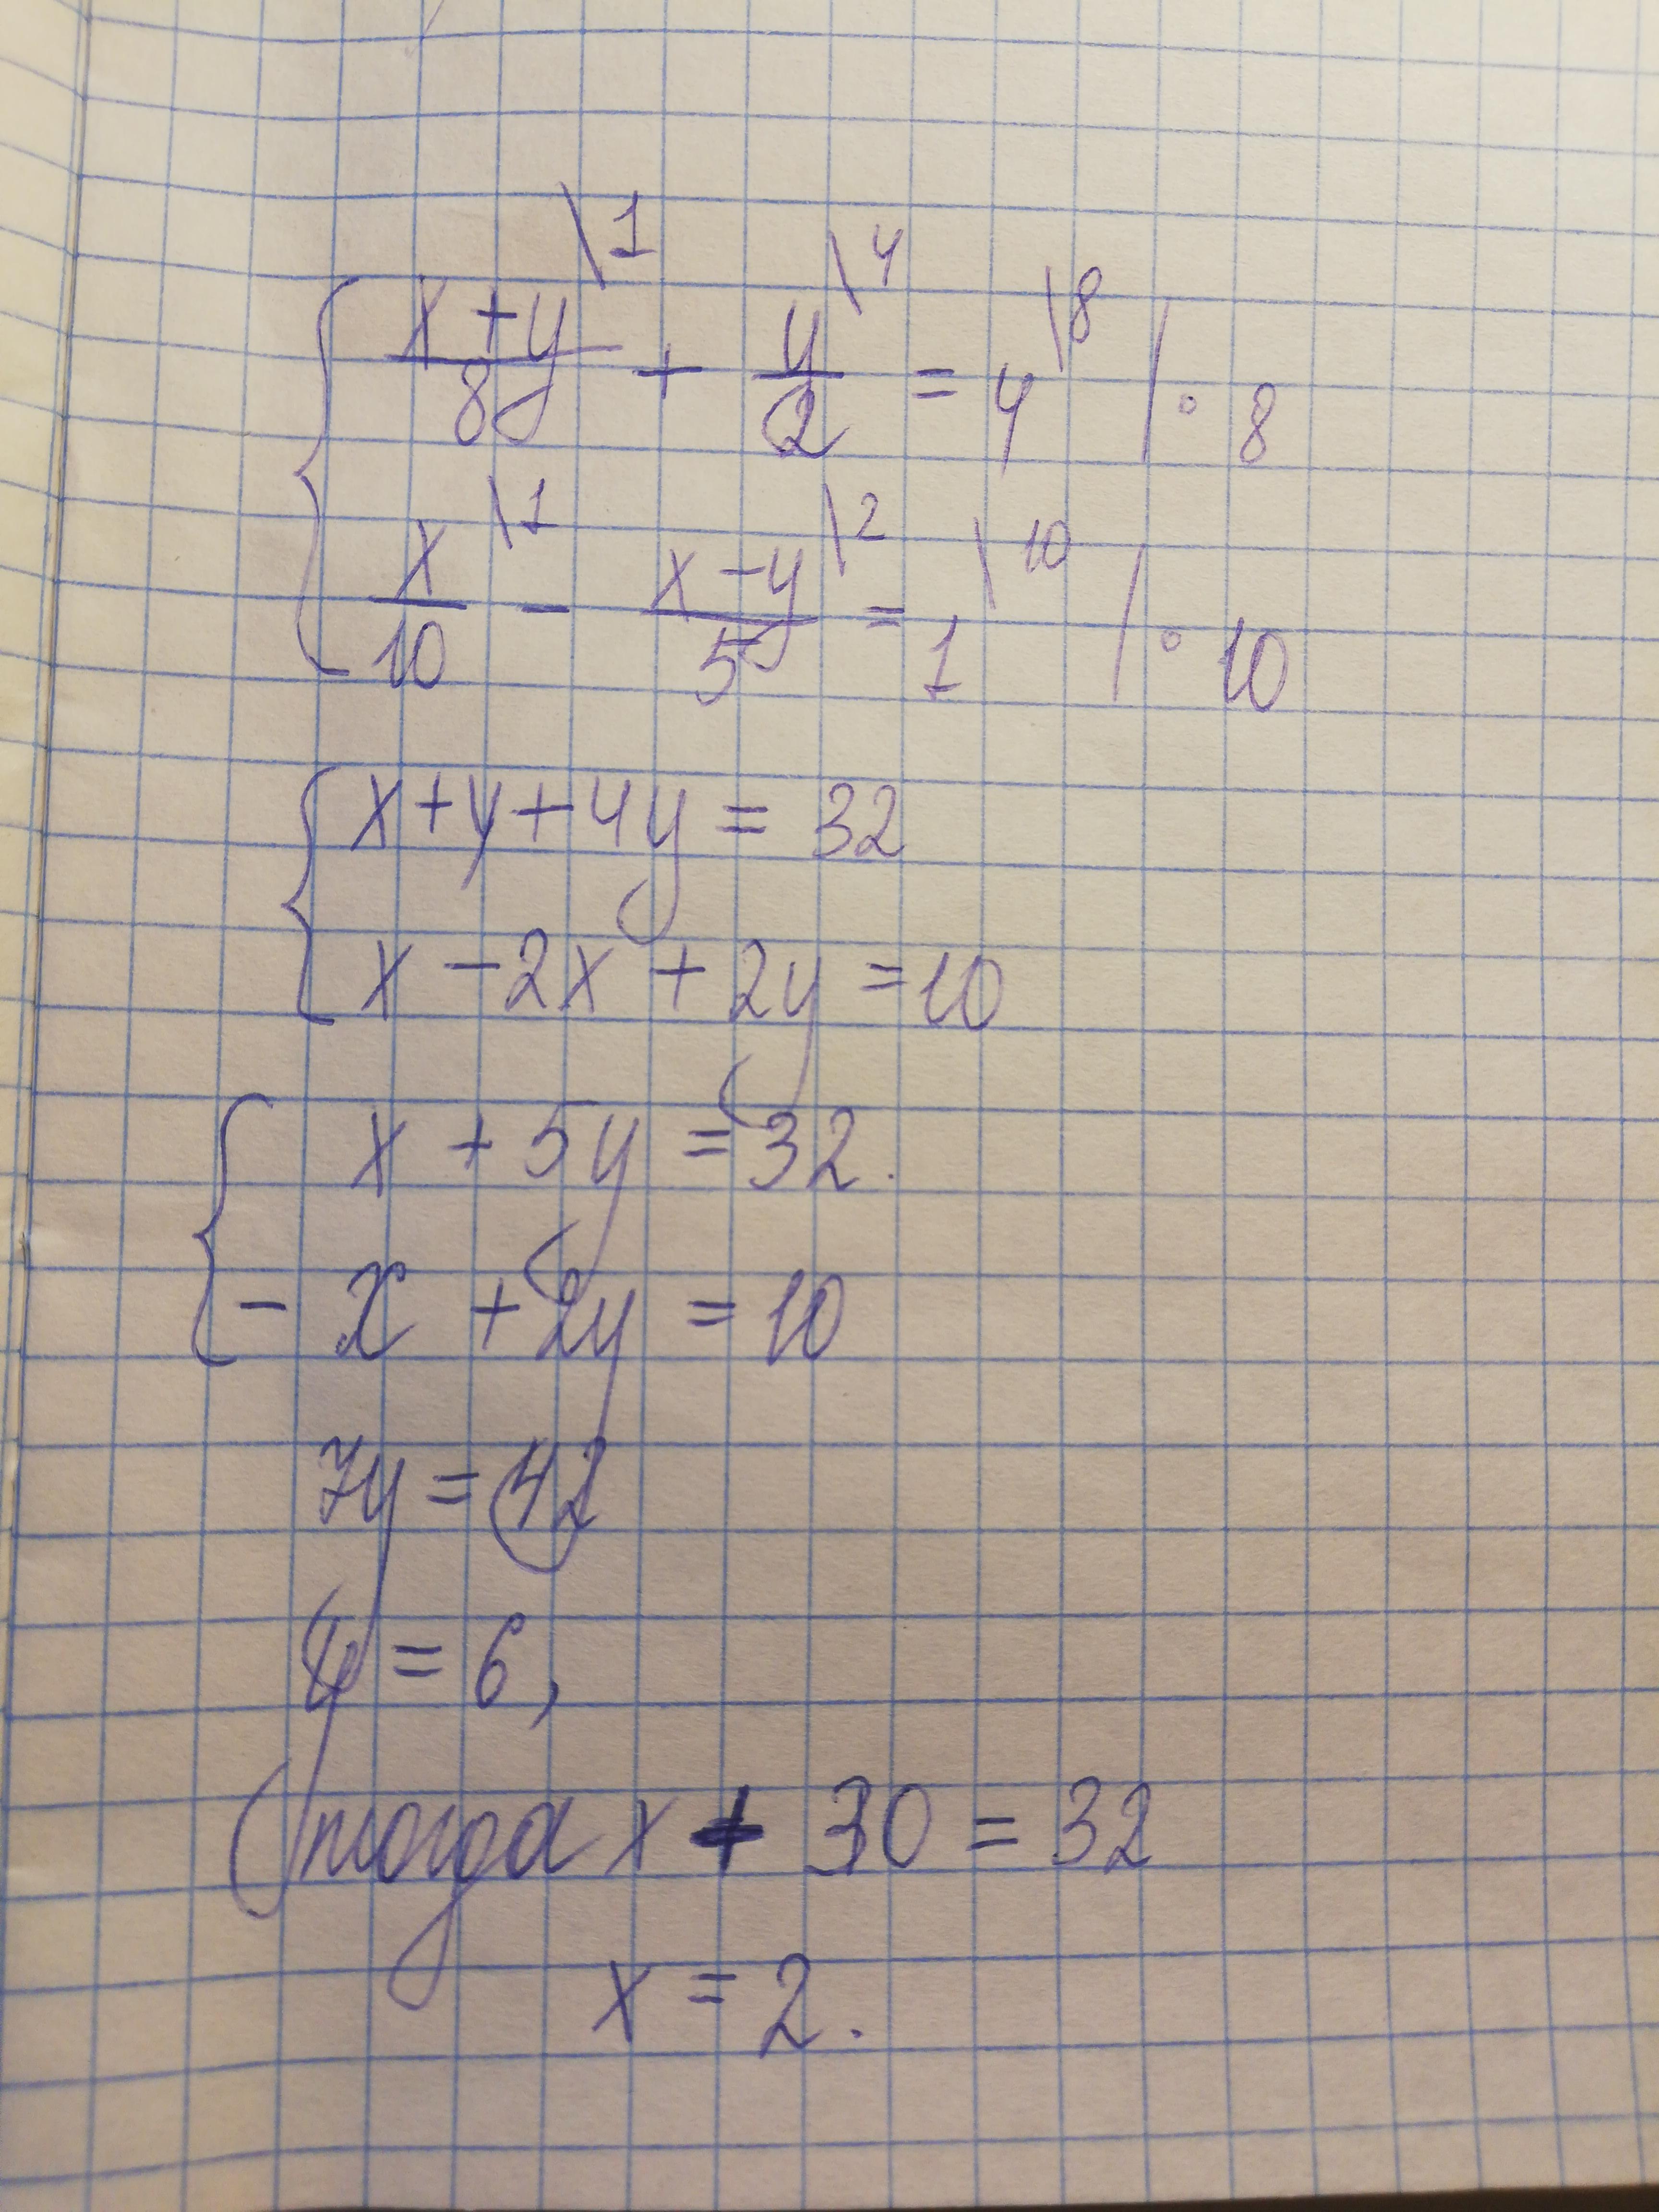 x+y/8 \1 + y/2 \4 = 4 \8 | · 8
x/10 \1 - x-y/5 \2 = 1 \10 | · 10
x+y+4y = 32
x-2x+2y=10
x+5y=32.
-x+2y=10
7y=42
y=6,
тогда x+30=32
x=2.